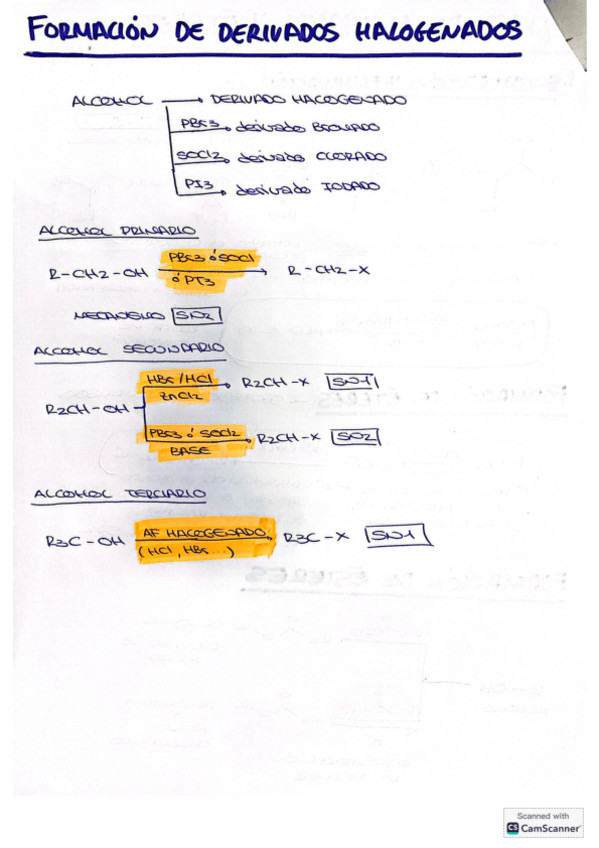 FORMACIÓN DE DERIVADOS HALOGENADOS
ALCOHOL → DERIVADO HALOGENADO
PBr3 → derivado BROMADO
SOCl2 → derivado CLORADO
PI3 → derivado IODADO
ALCOHOL PRIMARIO
PBr3 ó SOCl
R-CH2-OH → R-CH2-X
ó PI3
MECANISMO SN2
ALCOHOL SECUNDARIO
HBr/HCl → R2CH-X SN1
ZnCl2
R2CH-OH
PBr3 ó SOCl2 → R2CH-X SN2
BASE
ALCOHOL TERCIARIO
R3C-OH AF HALOGENADO → R3C-X SN1
(HCl, HBr...)
Scanned with
CS CamScanner